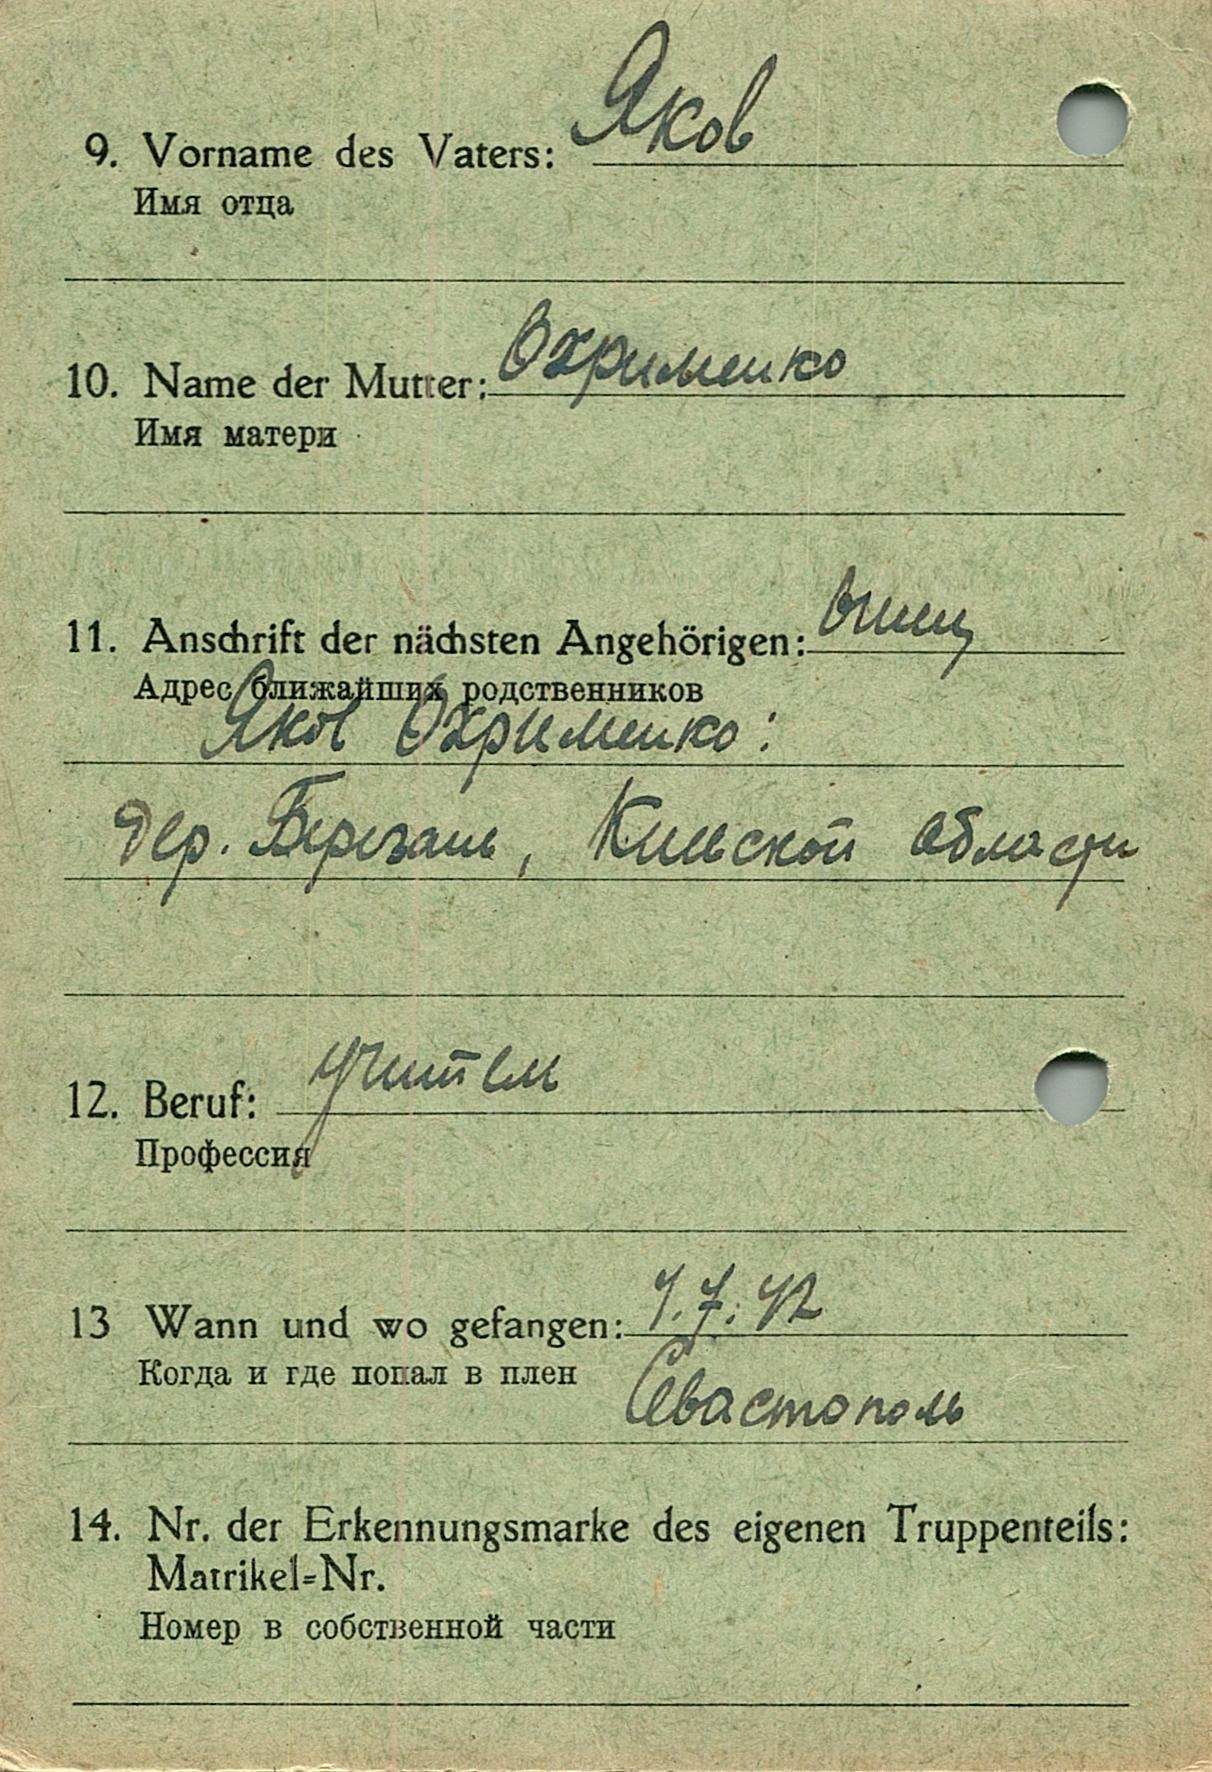 9. Vorname des Vaters: Яков
Имя отца
10. Name der Mutter: Охрименко
Имя матери
11. Anschrift der nächsten Angehörigen: Отец
Адрес ближайших родственников
Яков Охрименко:
дер. Березань, Киевской области
12. Beruf: учитель
Профессия
13 Wann und wo gefangen: 4.7.42
Когда и где попал в плен
Севастополь
14. Nr. der Erkennungsmarke des eigenen Truppenteils:
Matrikel-Nr.
Номер в собственной части